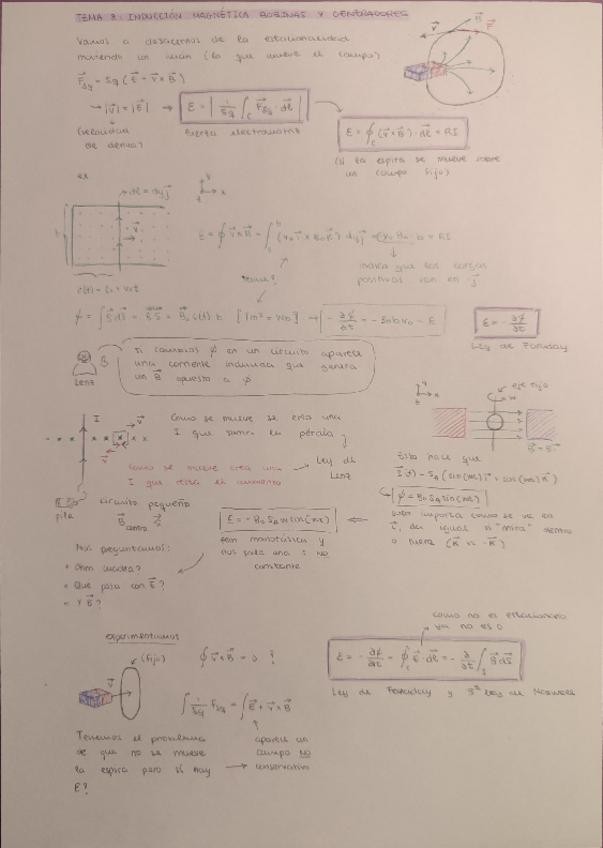 TEMA 8: INDUCCIÓN MAGNÉTICA BOBINAS Y GENERADORES
Vamos a deshacernos de la estacionalidad
moviendo un imán (lo que mueve el campo)
F⃗δq = δq (E⃗ + v⃗ × B⃗)
→ |v⃗| = |E⃗| → ε = | 1/δq ∫c F⃗δq · dl⃗ |
(velocidad
de deriva)
fuerza electromotriz
ε = ∮c (v⃗ × B⃗) · dl⃗ = RI
(si la espira se mueve sobre
un campo fijo)
B⃗
v⃗
ej
dl⃗ = dy j⃗
y
x
z
v⃗
ε = ∮ v⃗ × B⃗ = ∫ (v₀ i⃗ × B₀ k⃗) dy j⃗ = v₀ B₀ b = RI
indica que las cargas
positivas van en j⃗
[Tm² = Wb]
ε = - ∂ϕ/∂t
Ley de Faraday
Lenz
Si cambias ϕ en un circuito aparece
una corriente inducida que genera
un B⃗ opuesto a ϕ
I
v⃗
Como se mueve se crea una
I que
la pérdida
Como se mueve crea una
I que resta el aumento
Ley de
Lenz
pila
circuito pequeño
y
eje fijo
w
Esto hace que
ϕ = B₀ S₀ sin(wt)
importa como se ve en
da igual si "mira" dentro
o fuera (k⃗ vs -k⃗)
ε = - B₀ S₀ w cos(wt)
y
nos sale una I no
constante
Nos preguntamos:
• Ohm cuadra?
• Que pasa con E⃗?
• Y B⃗?
experimentamos
v⃗
(fijo)
∮ v⃗ × B⃗ = 0 ?
∫ 1/δq F⃗δq = ∫ E⃗ + v⃗ × B⃗
Tenemos el problema
de que no se mueve
la espira pero sí hay
ε?
aparece un
campo NO
conservativo
como no es estacionario
ya no es 0
ε = - ∂ϕ/∂t = ∮c E⃗ · dl⃗ = - ∂/∂t ∫s B⃗ dS⃗
Ley de Faraday y 3ª Ley de Maxwell